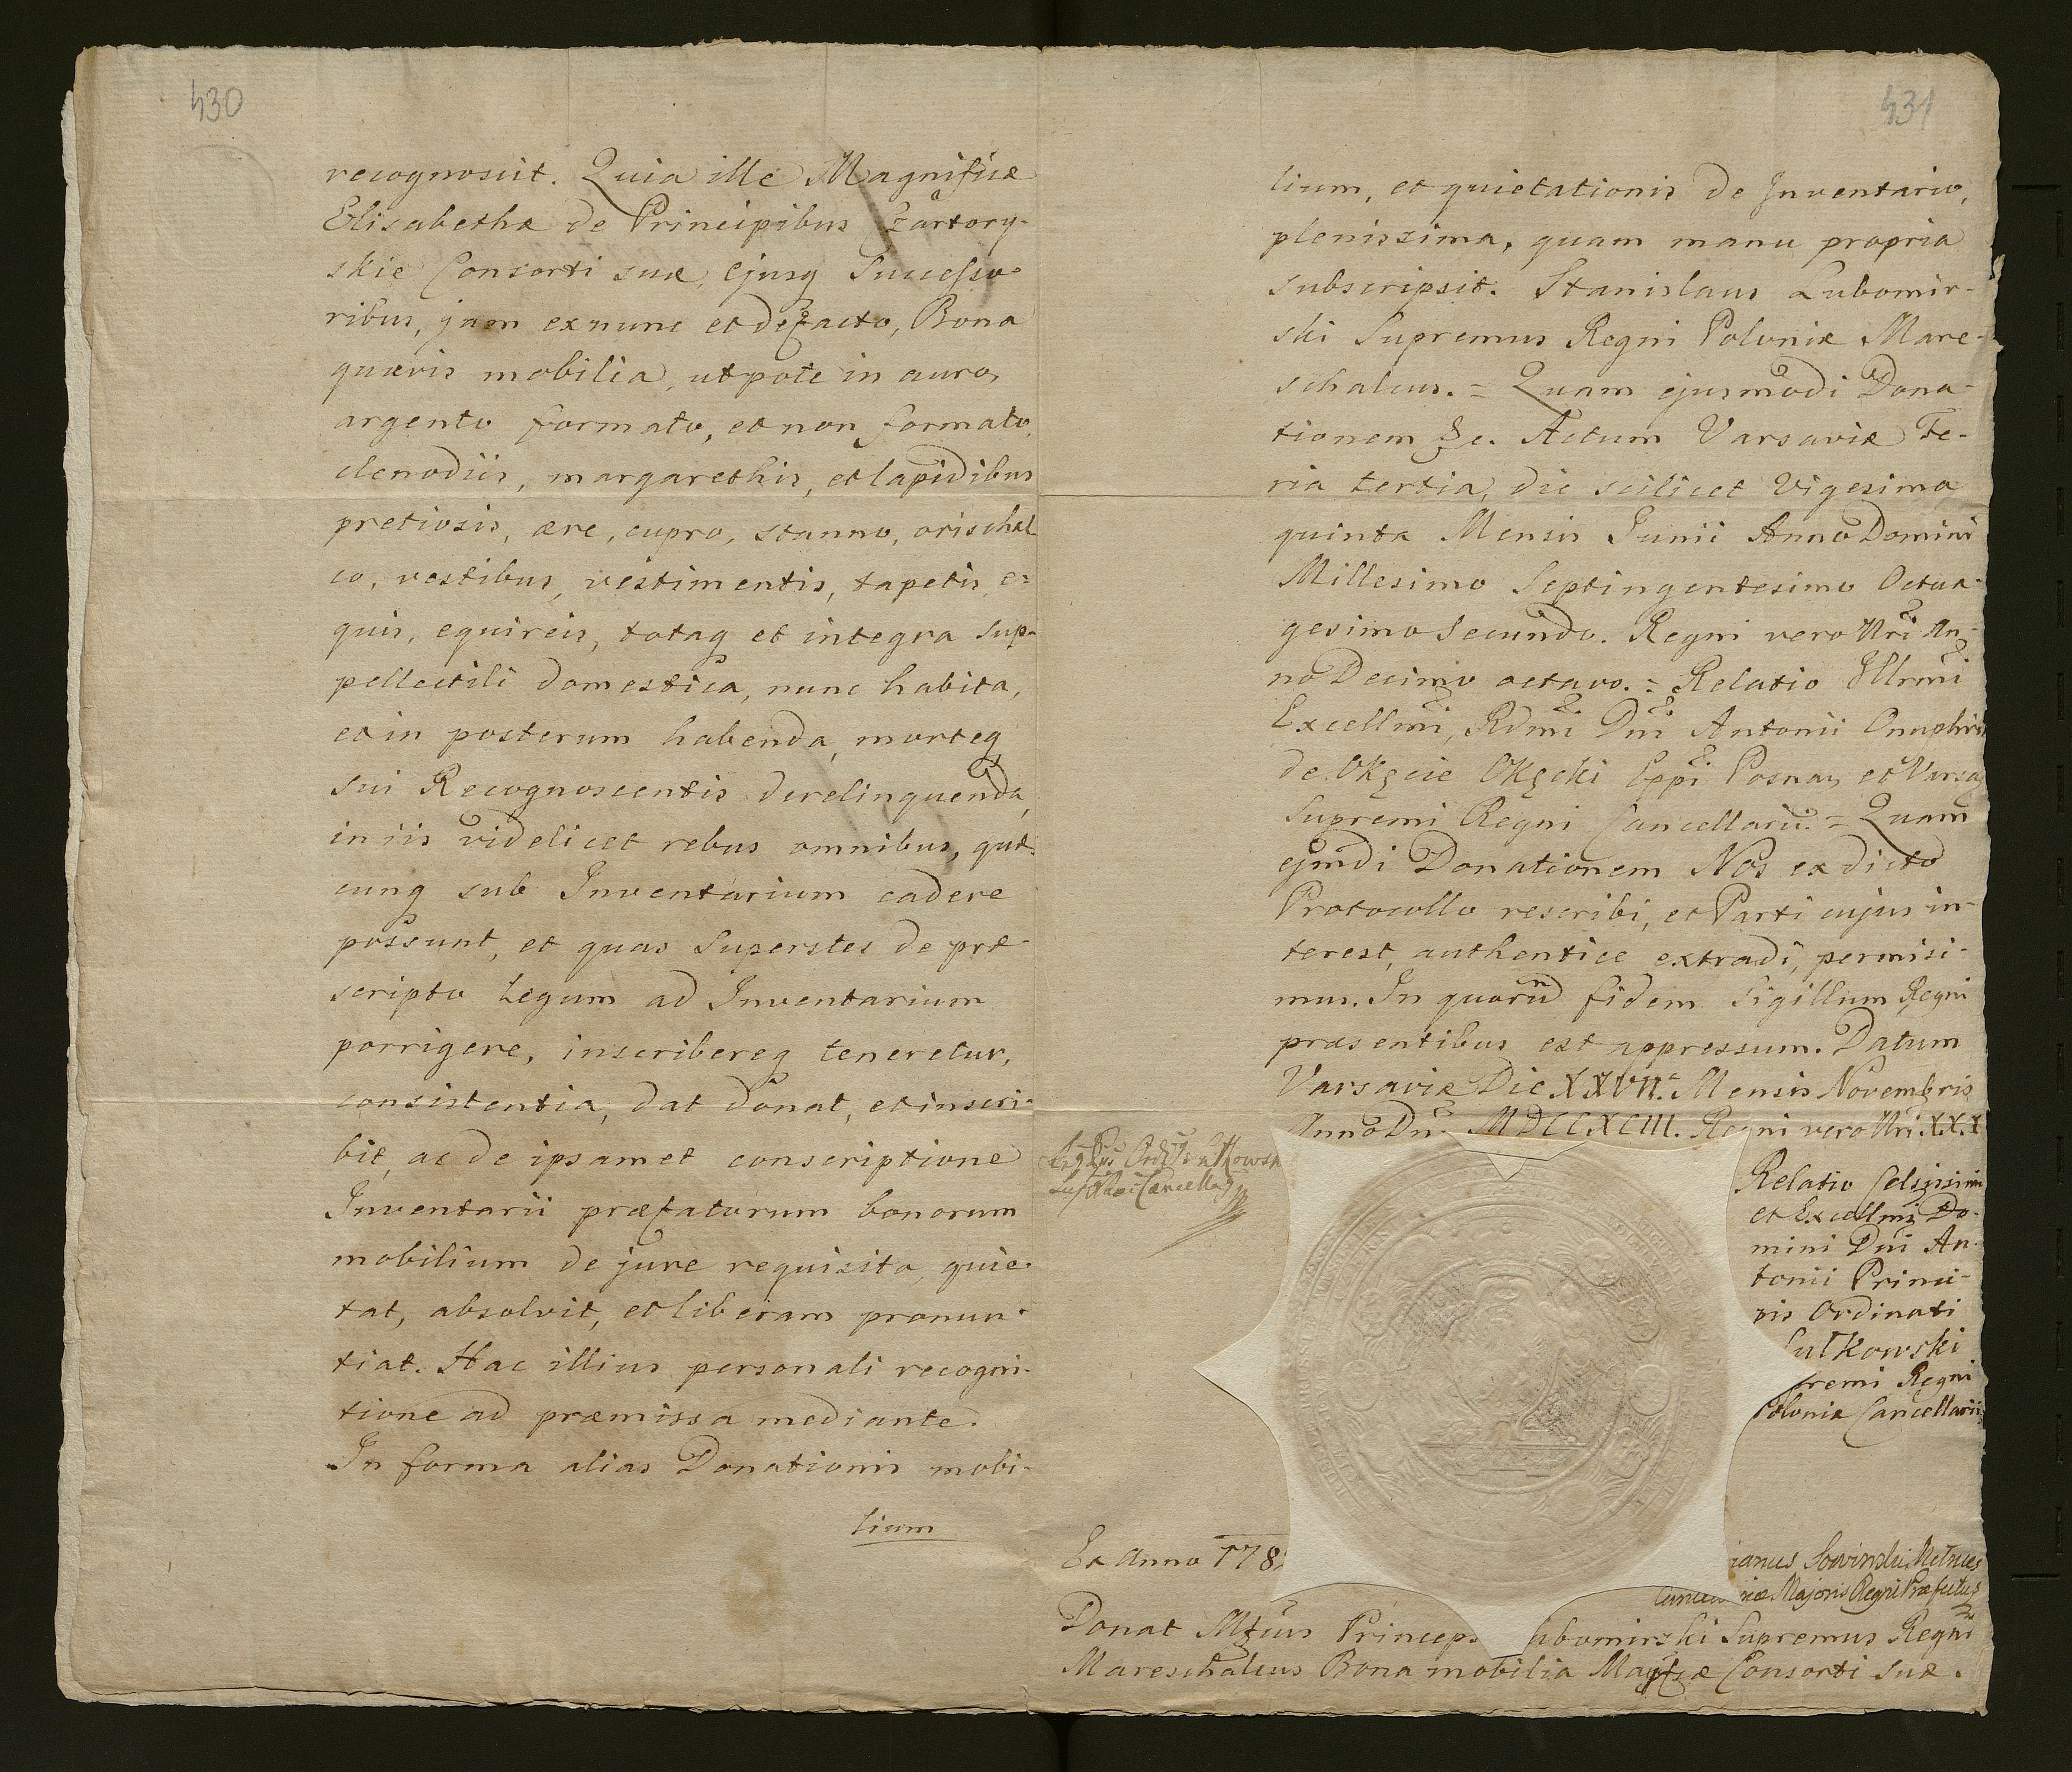 430
recognoscit. Quia ille Magnificæ
Elisabethæ de Principibus Czartory-
skie Consorti suæ, ejusq Successo-
ribus, jam ex nunc et defacto, Bona
quævis mobilia, utpote in auro,
argento formato, et non formato,
clenodiis, margarethis, et lapidibus
pretiosis, ære, cupro, stanno, orischal
co, vestibus, vestimentis, tapetis, e=
quis, equireis, totaq et integra sup-
pellectili domestica, nunc habita,
et in posterum habenda, morteq
sui Recognoscentis derelinquenda,
in iis videlicet rebus omnibus, quæ-
cunq sub Inventarium cadere
possunt, et quas Superstes de præ-
scripto Legum ad Inventarium
porrigere, inscribereq teneretur,
consistentia, dat donat, et inscri-
bit, ac de ipsamet conscriptione
Inventarii præfatorum bonorum
mobilium de jure requisita, quie-
tat, absolvit, et liberam pronun-
tiat. Hac illius personali recogni-
tione ad præmissa mediante.
In forma alias Donationis mobi-
lium
431
lium, et quietationis de Inventario,
plenissima, quam manu propria
subscripsit. Stanislaus Lubomir-
ski Supremus Regni Poloniæ Mare-
schalcus. = Quam ejusmodi Dona-
tionem &c. Actum Varsaviæ Fe-
ria tertia, die scilicet Vigesima
quinta Mensis Junii Anno Domini
Millesimo Septingentesimo Octua-
gesimo Secundo. Regni vero Nri An-
no Decimo octavo. = Relatio Illrmi
Excellmi, Rdmi Dni Antonii Onuphrii
de Okęcie Okęcki Eppi Posnan et Varsa
Supremi Regni Cancellarii. = Quam
ejmdi Donationem Nos ex dicto
Protocollo rescribi, et Parti cujus in-
terest, authentice extradi, permisi-
mus. In quorũ fidem Sigillum Regni
præsentibus est appressum. Datum
Varsaviæ Die XXVII. Mensis Novembris
Anno Dni MDCCXCIII. Regni vero Nri XXX
Relatio Celsissimi
et Excellmi Do-
mini Dni An-
tonii Princi-
pis Ordinati
Sulkowski
premi Regni
Poloniæ Cancellarii
Ex Anno 178
ianus Sowinski
riæ Majoris Regni Præfectus
Donat Mfcus Princeps ubomirski Supremus Regni
Mareschalcus Bona mobilia Magfcæ Consorti suæ.